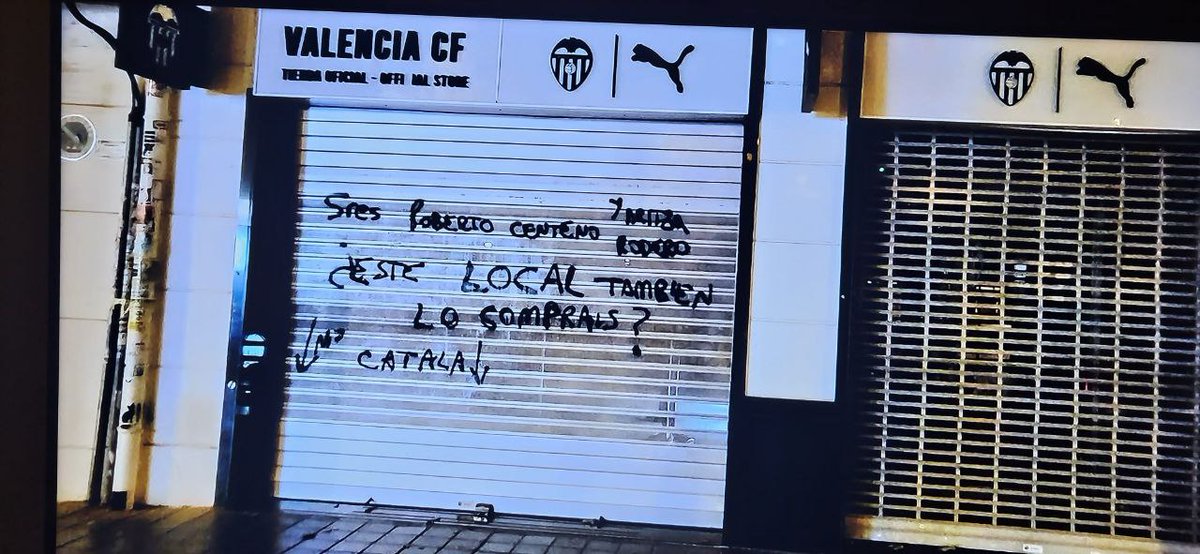 VALENCIA CF
TIENDA OFICIAL - OFFI IAL STORE
Sres ROBERTO CENTENO Y
RODERO
¿ESTE LOCAL TAMBIEN
LO COMPRAIS?
CATALA